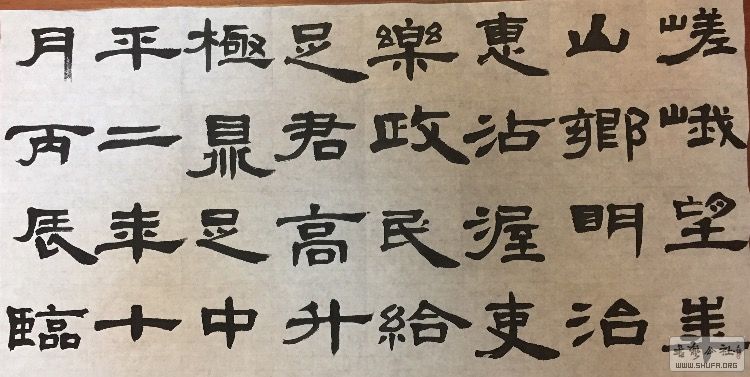 嵯峨望華
山鄉明治
惠沾渥吏
樂政民給
足君高升
極鼎足中
平二年十
月丙辰臨
WWW.SHUFA.ORG